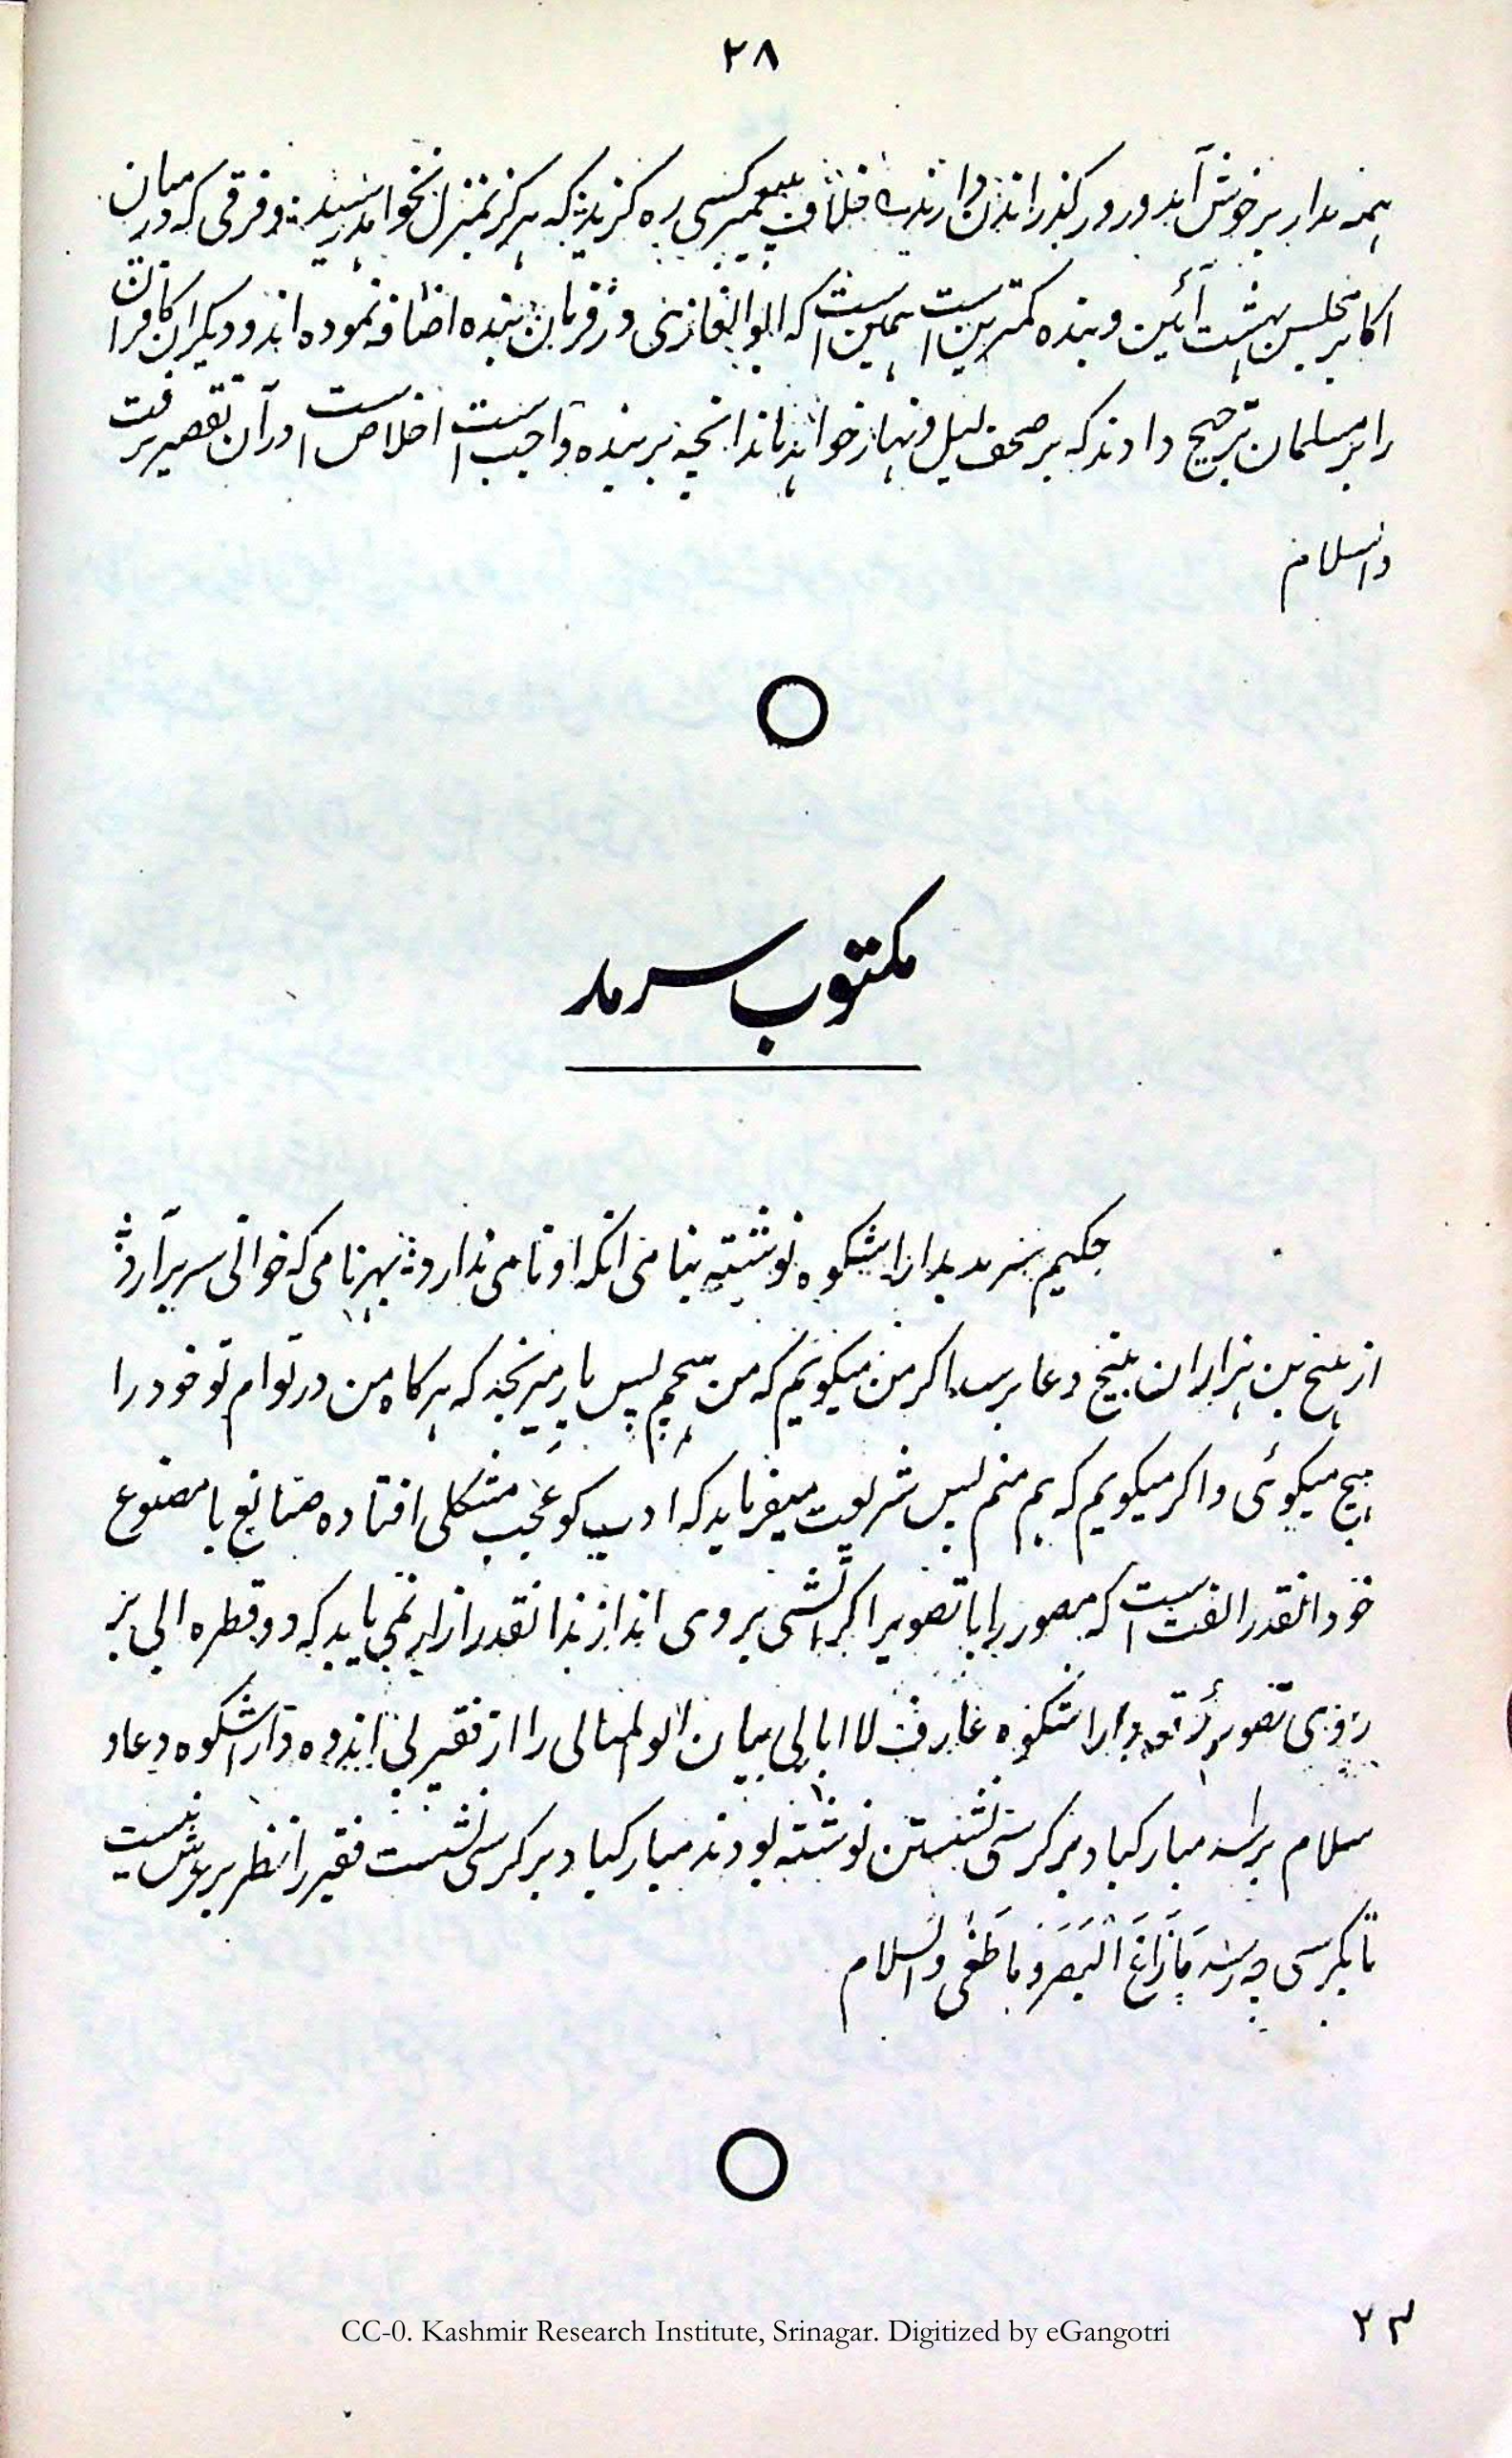 ۲۸
همه مدار بر خوش آید و روز گذراندن دارند؞ خلاف پیمبر کسی ره گزید؞ که هرگز بمنزل نخواهد رسید؞ و فرقی که در میان
اکابر مجلس بهشت آئین و بنده کمترین است همین است که ابوالغازی در فرمان بنده اضافه نموده اند و دیگران کافران
را بر مسلمان ترجیح دادند که بر صحف لیل و نهار خواهد ماند انچه بر بنده واجب است اخلاص است در آن تقصیر نرفت
والسلام
مکتوب سرمد
حکیم سرمد بداراشکوه نوشته بنامی انکه او نامی ندارد؞ بهر نامی که خوانی سر برآرد؞
از هیچ بن هزاران هیچ دعا برسد اگر من میگویم که من هیچم پس یار میرنجد که هرگاه من در توام تو خود را
هیچ میگوئی و اگر میگویم که هم منم پس شریعت میفرماید که ادب کو عجب مشکلی افتاده صانع با مصنوع
خود انقدر الفت است که مصور را با تصویر اگر آتشی بروی اندازند انقدر از ابر نمی باید که دو قطره ابی بر
روی تصویر داراشکوه عارف لا ابالی بیان الو لمنالی را از فقیر بی اندوه داراشکوه دعا و
سلام برسد مبارکباد بر کرسی نشستن نوشته بودند مبارکباد بر کرسی نشست فقیر را نظر بر عرش نیست
تا بکرسی چه رسد مَا زَاغَ الْبَصَرُ وَمَا طَغٰی والسلام
CC-0. Kashmir Research Institute, Srinagar. Digitized by eGangotri
۲۳